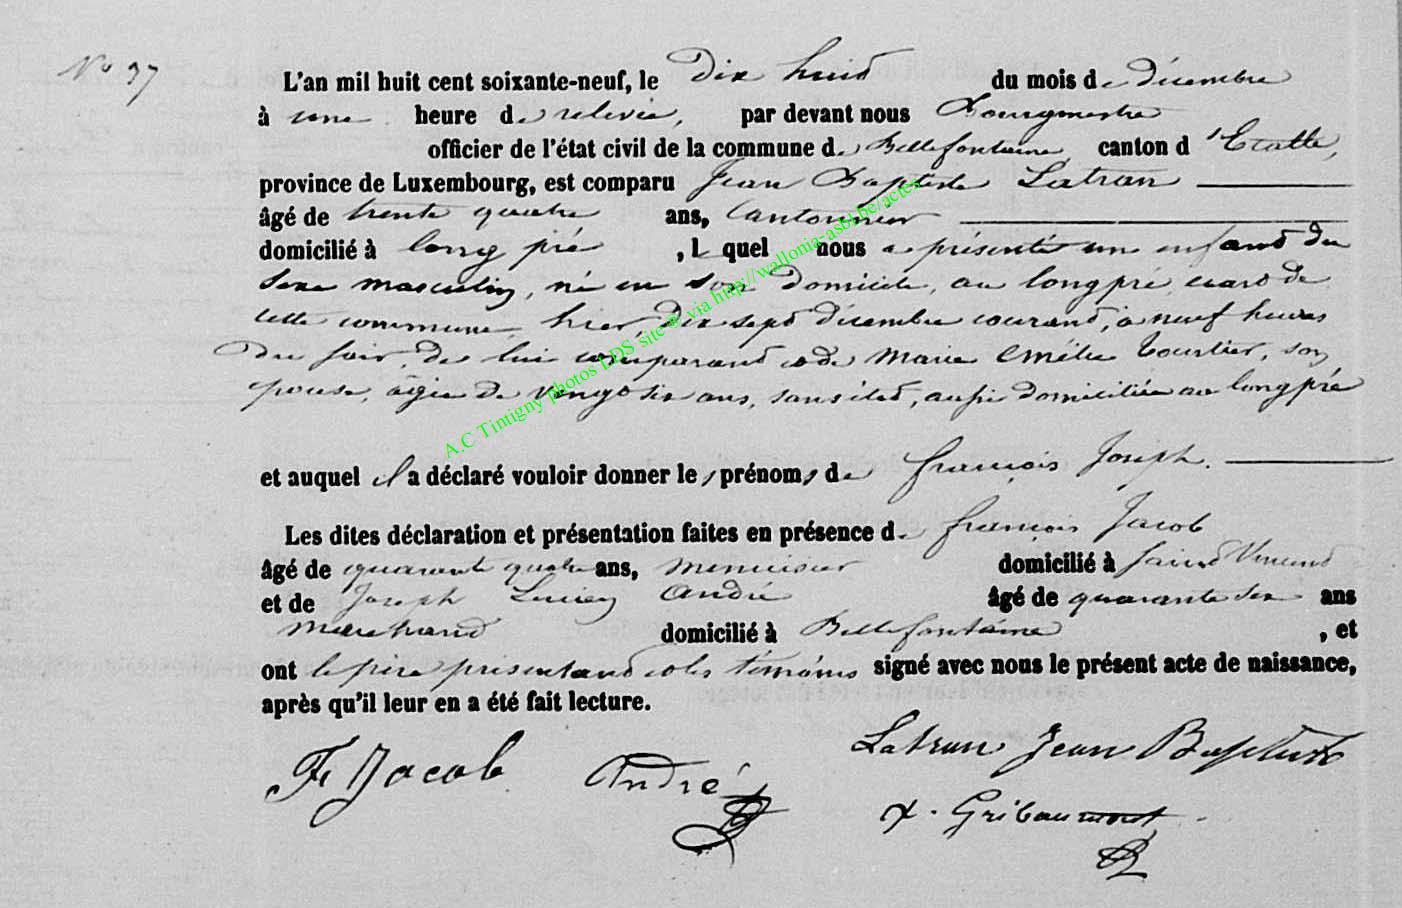 N° 37
L'an mil huit cent soixante-neuf, le Dix huit du mois de décembre
à une heure de relevée, par devant nous Bourgmestre
officier de l'état civil de la commune de Bellefontaine, canton d'Etalle,
province de Luxembourg, est comparu Jean Baptiste Latran
âgé de trente quatre ans, Cantonnier
domicilié à long pré, lequel nous a présenté un enfant du
Sexe masculin, né en son domicile, au longpré écart de
cette commune, hier, dix sept décembre courant, à neuf heures
du soir, de lui comparant et de Marie Emélie Tourtier, son
épouse, âgée de vingt six ans, sans état, aussi domiciliée au longpré
et auquel il a déclaré vouloir donner les prénoms de françois Joseph.
Les dites déclaration et présentation faites en présence de françois Jacob
âgé de quarante quatre ans, menuisier domicilié à Saint Vincent
et de Joseph Lucien André âgé de quarante six ans
marchand domicilié à Bellefontaine, et
ont le père présentant et les témoins signé avec nous le présent acte de naissance,
après qu'il leur en a été fait lecture.
Latran Jean Baptiste
F Jacob André
x. Gribaumont
A.C Tintigny photos LDS site © via http://wallonia-asbl.be/actes